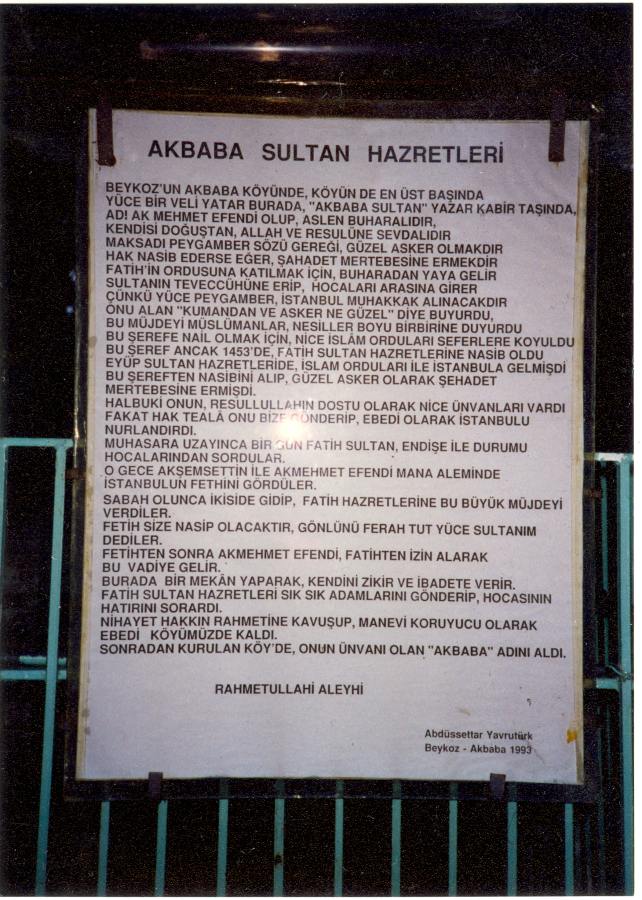 AKBABA SULTAN HAZRETLERİ
BEYKOZ'UN AKBABA KÖYÜNDE, KÖYÜN DE EN ÜST BAŞINDA
YÜCE BİR VELİ YATAR BURADA, "AKBABA SULTAN" YAZAR KABİR TAŞINDA,
ADI AK MEHMET EFENDİ OLUP, ASLEN BUHARALIDIR,
KENDİSİ DOĞUŞTAN, ALLAH VE RESULÜNE SEVDALIDIR
MAKSADI PEYGAMBER SÖZÜ GEREĞİ, GÜZEL ASKER OLMAKDIR
HAK NASİB EDERSE EĞER, ŞAHADET MERTEBESİNE ERMEKDİR
FATİH'İN ORDUSUNA KATILMAK İÇİN, BUHARADAN YAYA GELİR
SULTANIN TEVECCÜHÜNE ERİP, HOCALARI ARASINA GİRER
ÇÜNKÜ YÜCE PEYGAMBER, İSTANBUL MUHAKKAK ALINACAKDIR
ONU ALAN "KUMANDAN VE ASKER NE GÜZEL" DİYE BUYURDU,
BU MÜJDEYİ MÜSLÜMANLAR, NESİLLER BOYU BİRBİRİNE DUYURDU
BU ŞEREFE NAİL OLMAK İÇİN, NİCE İSLÂM ORDULARI SEFERLERE KOYULDU
BU ŞEREF ANCAK 1453'DE, FATİH SULTAN HAZRETLERİNE NASİB OLDU
EYÜP SULTAN HAZRETLERİDE, İSLAM ORDULARI İLE İSTANBULA GELMİŞDİ
BU ŞEREFTEN NASİBİNİ ALIP, GÜZEL ASKER OLARAK ŞEHADET
MERTEBESİNE ERMİŞDİ.
HALBUKİ ONUN, RESULLULLAHIN DOSTU OLARAK NİCE ÜNVANLARI VARDI
FAKAT HAK TEALÂ ONU BİZE GÖNDERİP, EBEDİ OLARAK İSTANBULU
NURLANDIRDI.
MUHASARA UZAYINCA BİR GÜN FATİH SULTAN, ENDİŞE İLE DURUMU
HOCALARINDAN SORDULAR.
O GECE AKŞEMSETTİN İLE AKMEHMET EFENDİ MANA ALEMİNDE
İSTANBULUN FETHİNİ GÖRDÜLER.
SABAH OLUNCA İKİSİDE GİDİP, FATİH HAZRETLERİNE BU BÜYÜK MÜJDEYİ
VERDİLER.
FETİH SİZE NASİP OLACAKTIR, GÖNLÜNÜ FERAH TUT YÜCE SULTANIM
DEDİLER.
FETİHTEN SONRA AKMEHMET EFENDİ, FATİHTEN İZİN ALARAK
BU VADİYE GELİR.
BURADA BİR MEKÂN YAPARAK, KENDİNİ ZİKİR VE İBADETE VERİR.
FATİH SULTAN HAZRETLERİ SIK SIK ADAMLARINI GÖNDERİP, HOCASININ
HATIRINI SORARDI.
NİHAYET HAKKIN RAHMETİNE KAVUŞUP, MANEVİ KORUYUCU OLARAK
EBEDİ KÖYÜMÜZDE KALDI.
SONRADAN KURULAN KÖY'DE, ONUN ÜNVANI OLAN "AKBABA" ADINI ALDI.
RAHMETULLAHİ ALEYHİ
Abdüssettar Yavrutürk
Beykoz - Akbaba 1993